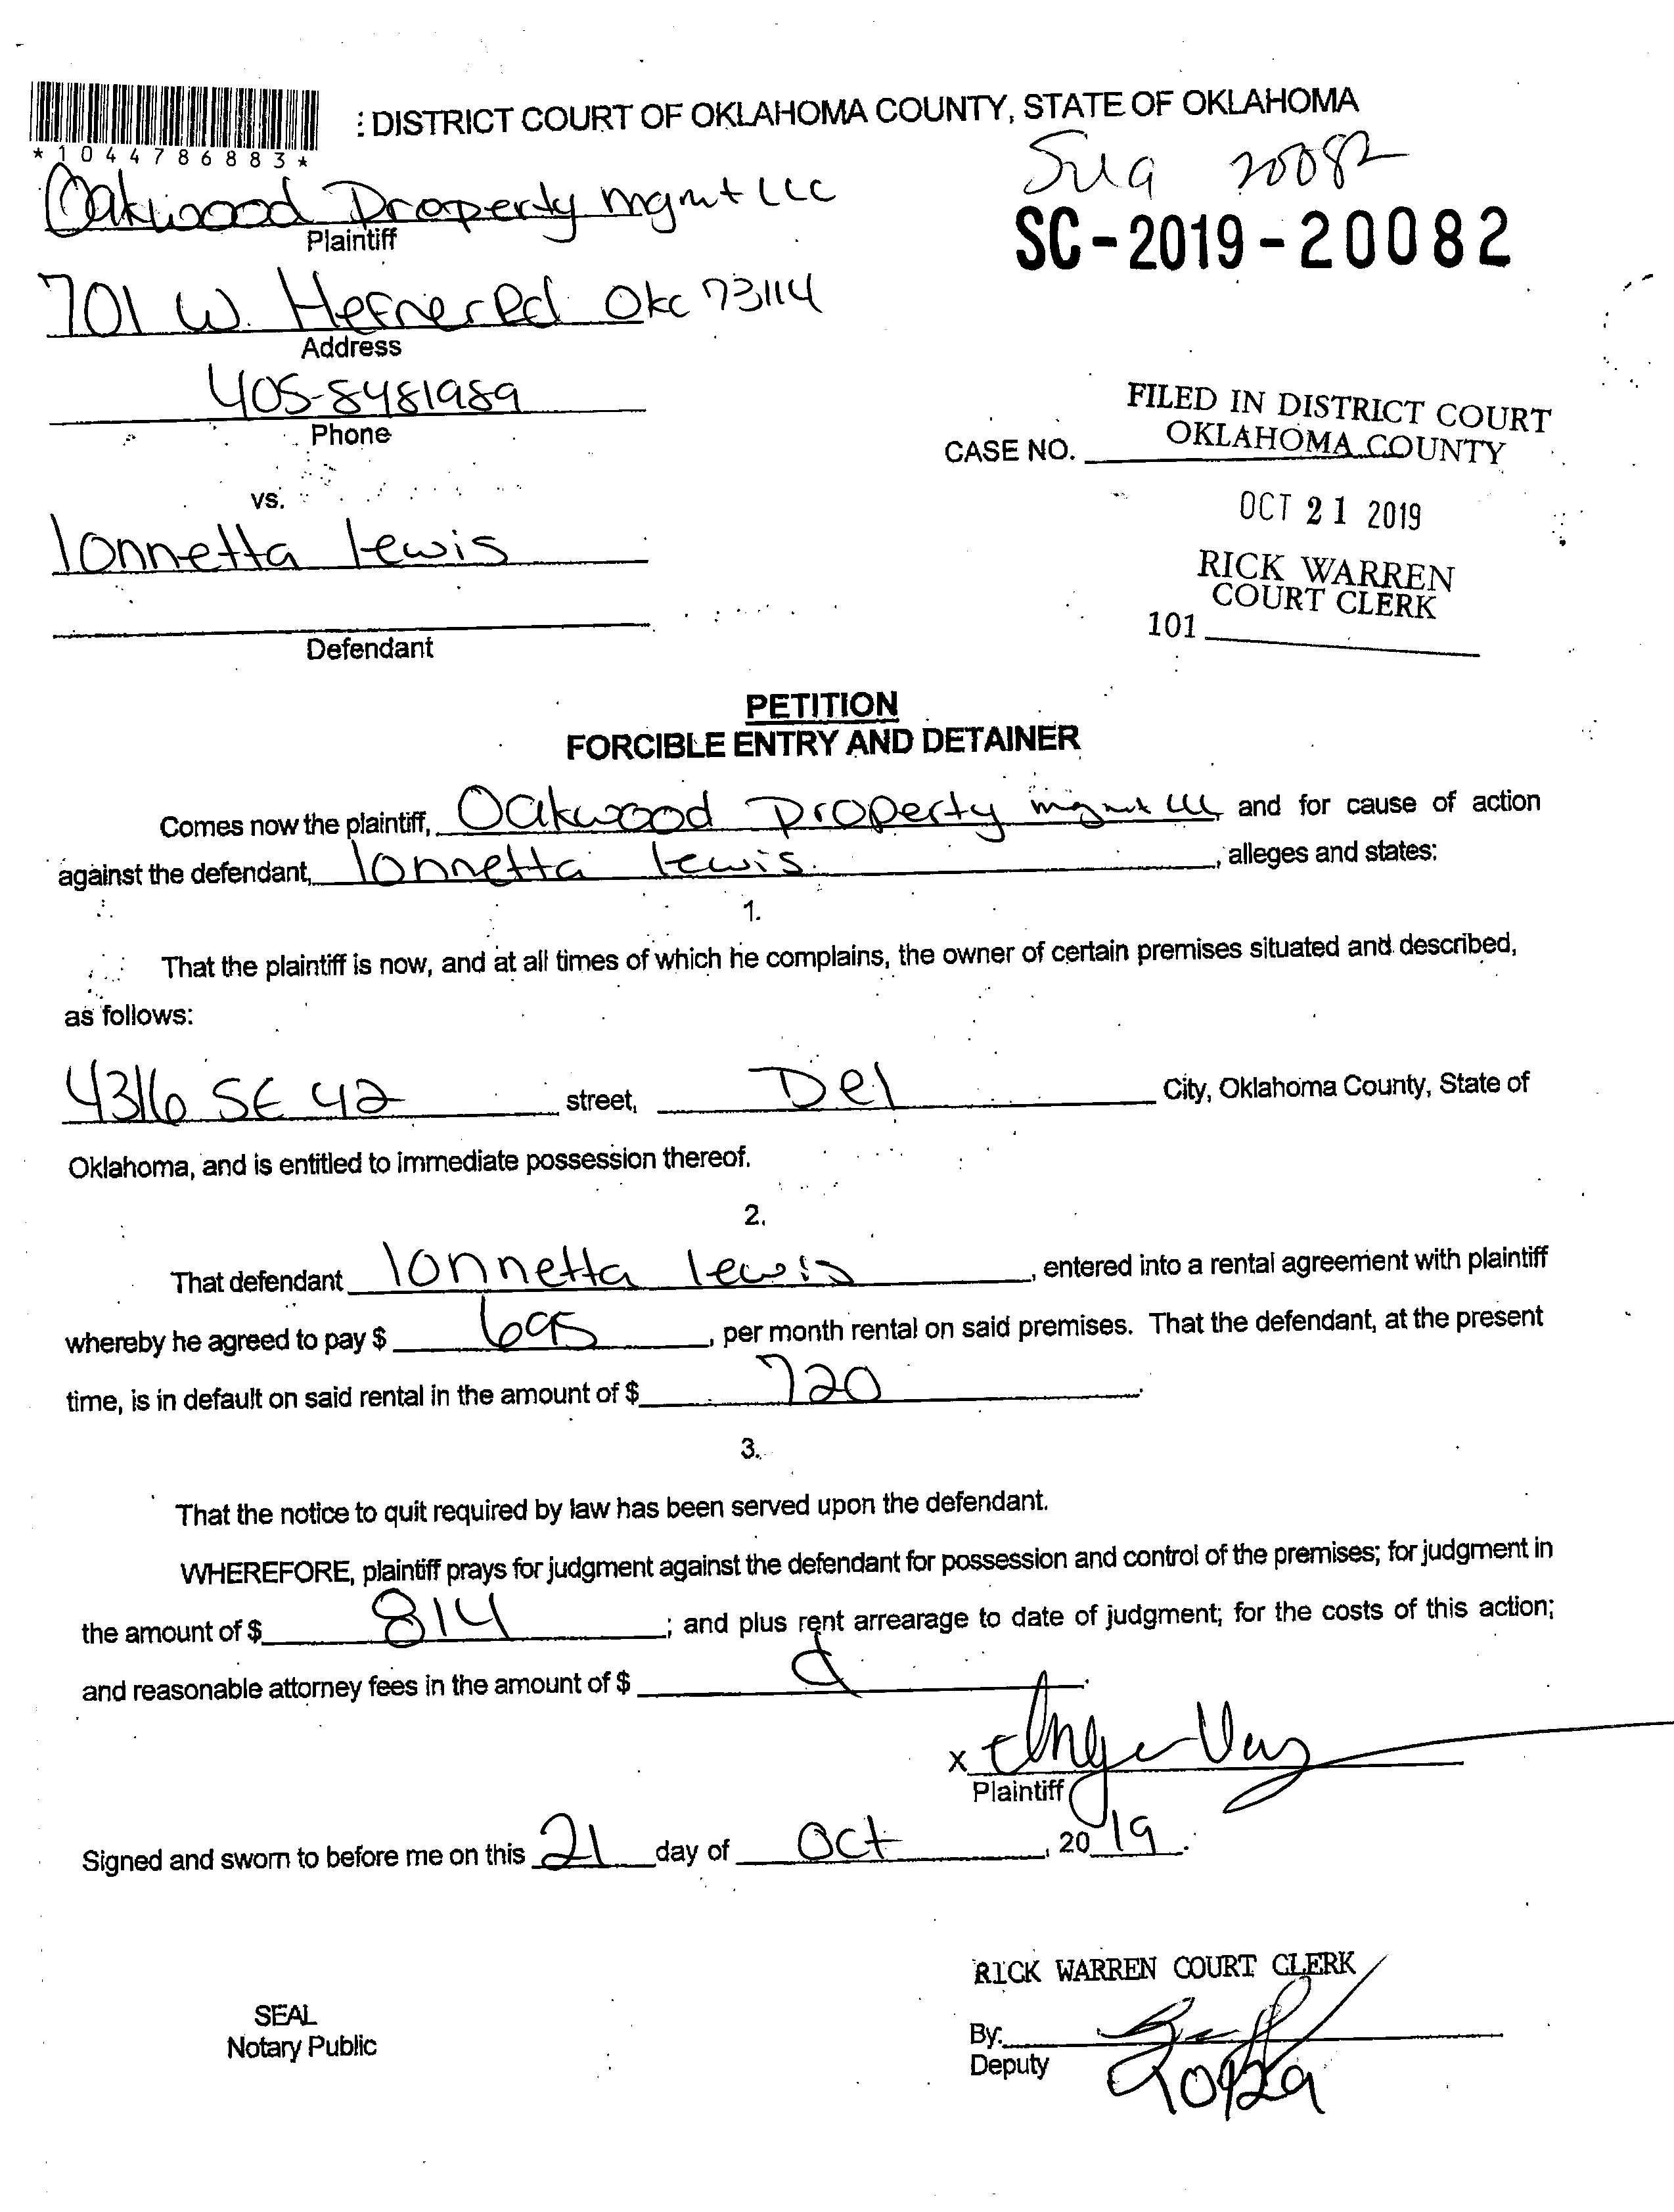 : DISTRICT COURT OF OKLAHOMA COUNTY, STATE OF OKLAHOMA
*1044786883*
20082
Oakwood Property mgmt LLC
Plaintiff
SC-2019-20082
701 W. Hefner Rd Okc 73114
Address
405-8481989
Phone
FILED IN DISTRICT COURT
OKLAHOMA COUNTY
CASE NO.
vs.
OCT 21 2019
lonnetta lewis
RICK WARREN
COURT CLERK
101
Defendant
PETITION
FORCIBLE ENTRY AND DETAINER
Comes now the plaintiff, Oakwood Property mgmt LLC and for cause of action
against the defendant, lonnetta lewis, alleges and states:
1.
That the plaintiff is now, and at all times of which he complains, the owner of certain premises situated and described,
as follows:
4316 SE 42 street, Del City, Oklahoma County, State of
Oklahoma, and is entitled to immediate possession thereof.
2.
That defendant lonnetta lewis, entered into a rental agreement with plaintiff
whereby he agreed to pay $ 695, per month rental on said premises. That the defendant, at the present
time, is in default on said rental in the amount of $ 720.
3.
That the notice to quit required by law has been served upon the defendant.
WHEREFORE, plaintiff prays for judgment against the defendant for possession and control of the premises; for judgment in
the amount of $ 814; and plus rent arrearage to date of judgment; for the costs of this action;
and reasonable attorney fees in the amount of $
x
Plaintiff
Signed and sworn to before me on this 21 day of Oct, 2019.
RICK WARREN COURT CLERK
SEAL
Notary Public
By:
Deputy